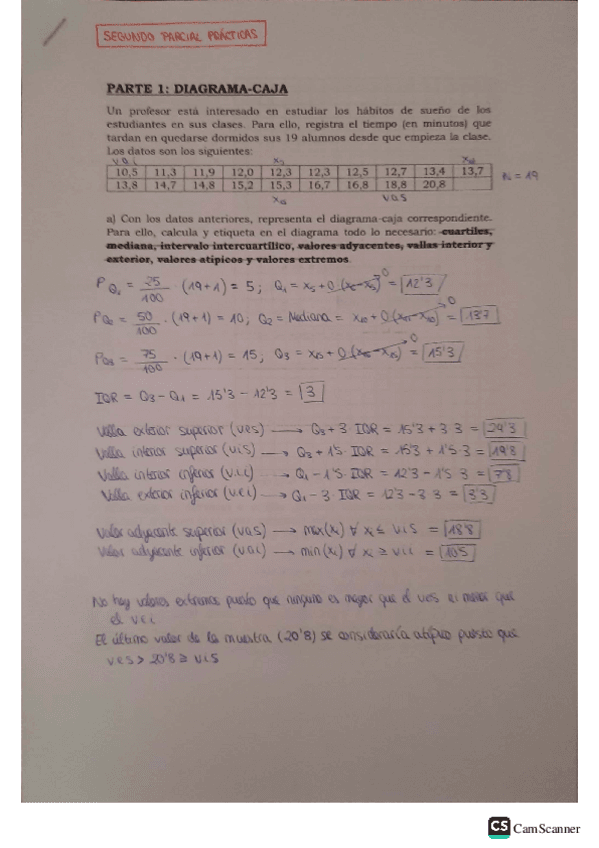 SEGUNDO PARCIAL PRÁCTICAS
PARTE 1: DIAGRAMA-CAJA
Un profesor está interesado en estudiar los hábitos de sueño de los
estudiantes en sus clases. Para ello, registra el tiempo (en minutos) que
tardan en quedarse dormidos sus 19 alumnos desde que empieza la clase.
Los datos son los siguientes:
v.a.i x5 x10
10,5 11,3 11,9 12,0 12,3 12,3 12,5 12,7 13,4 13,7
n = 19
13,8 14,7 14,8 15,2 15,3 16,7 16,8 18,8 20,8
x15 v.a.s
a) Con los datos anteriores, representa el diagrama-caja correspondiente.
Para ello, calcula y etiqueta en el diagrama todo lo necesario: cuartiles,
mediana, intervalo intercuartílico, valores adyacentes, vallas interior y
exterior, valores atípicos y valores extremos.
PQ1 = 25/100 · (19+1) = 5; Q1 = x5 + 0 (x6-x5) 0 = 12'3
PQ2 = 50/100 · (19+1) = 10; Q2 = Mediana = x10 + 0 (x11-x10) 0 = 13'7
PQ3 = 75/100 · (19+1) = 15; Q3 = x15 + 0 (x16-x15) 0 = 15'3
IQR = Q3 - Q1 = 15'3 - 12'3 = 3
Valla exterior superior (ves) → Q3 + 3 · IQR = 15'3 + 3·3 = 24'3
Valla interior superior (vis) → Q3 + 1'5 · IQR = 15'3 + 1'5·3 = 19'8
Valla interior inferior (vii) → Q1 - 1'5 · IQR = 12'3 - 1'5·3 = 7'8
Valla exterior inferior (vei) → Q1 - 3 · IQR = 12'3 - 3·3 = 3'3
Valor adyacente superior (vas) → max(xi) ∀ xi ≤ vis = 18'8
Valor adyacente inferior (vai) → min(xi) ∀ xi ≥ vii = 10'5
No hay valores extremos puesto que ninguno es mayor que el ves ni menor que
el vei
El último valor de la muestra (20'8) se consideraría atípico puesto que
ves > 20'8 ≥ vis
CS CamScanner